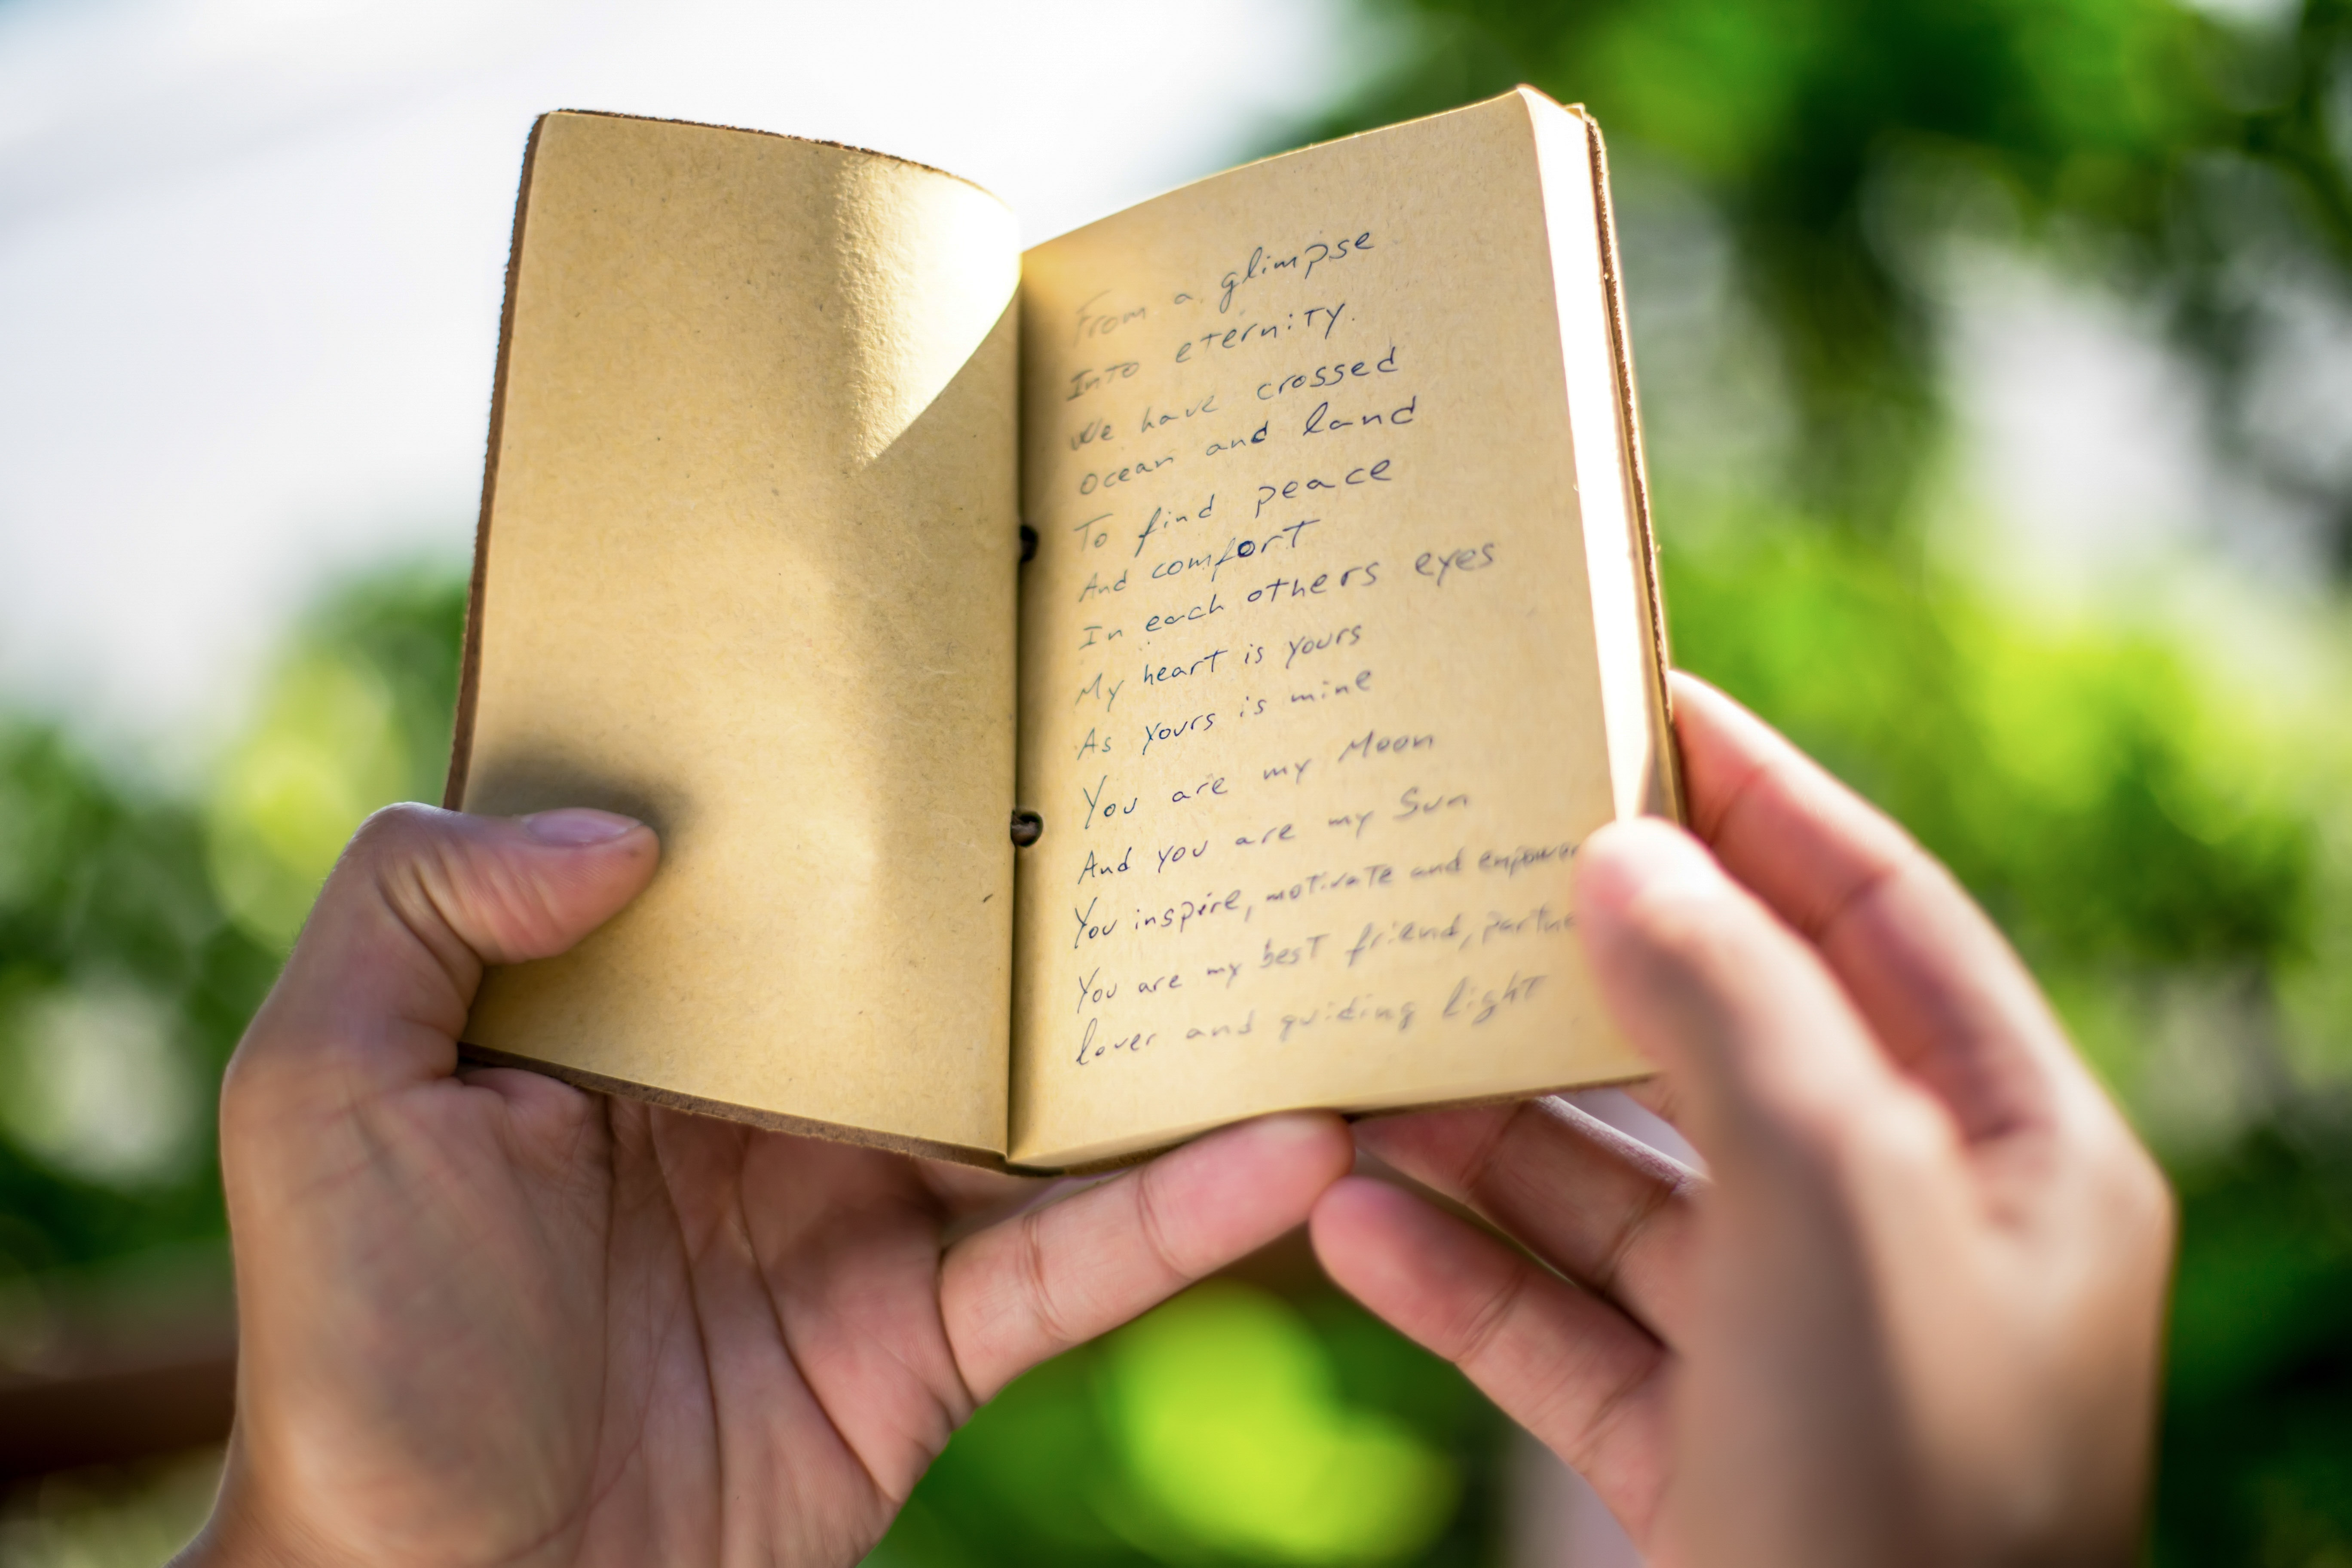 From a glimpse
Into eternity.
We have crossed
Ocean and land
To find peace
And comfort
In each others eyes
My heart is yours
As yours is mine
You are my Moon
And you are my Sun
You inspire, motivate and empower
You are my best friend, partne
lover and guiding light